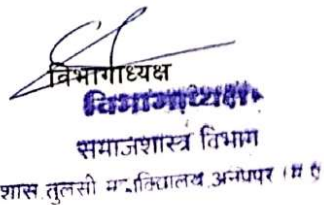 विभागाध्यक्ष
विभागाध्यक्ष
समाजशास्त्र विभाग
शास. तुलसी महाविद्यालय अनूपपर (म प्र